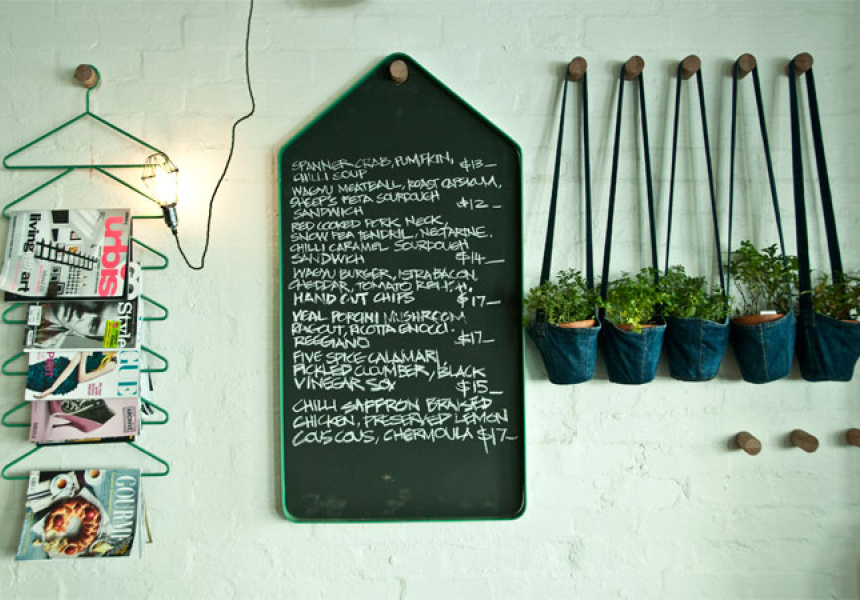 SPANNER CRAB, PUMPKIN, $13_
CHILLI SOUP
WAGYU MEATBALL, ROAST CAPSICUM,
SHEEP'S FETA SOURDOUGH $12_
SANDWICH
RED COOKED PORK NECK,
SNOW PEA TENDRIL, NECTARINE,
CHILLI CARAMEL SOURDOUGH
SANDWICH $14_
WAGYU BURGER, ISTRA BACON,
CHEDDAR, TOMATO RELISH,
HAND CUT CHIPS $17_
VEAL PORCINI MUSHROOM
RAGOUT, RICOTTA GNOCCI.
REGGIANO $17_
FIVE SPICE CALAMARI
PICKLED CUCUMBER, BLACK
VINEGAR SOX $15_
CHILLI SAFFRON BRAISED
CHICKEN, PRESERVED LEMON
COUS COUS, CHERMOULA $17_
living
art
urbis
Style
GOURME